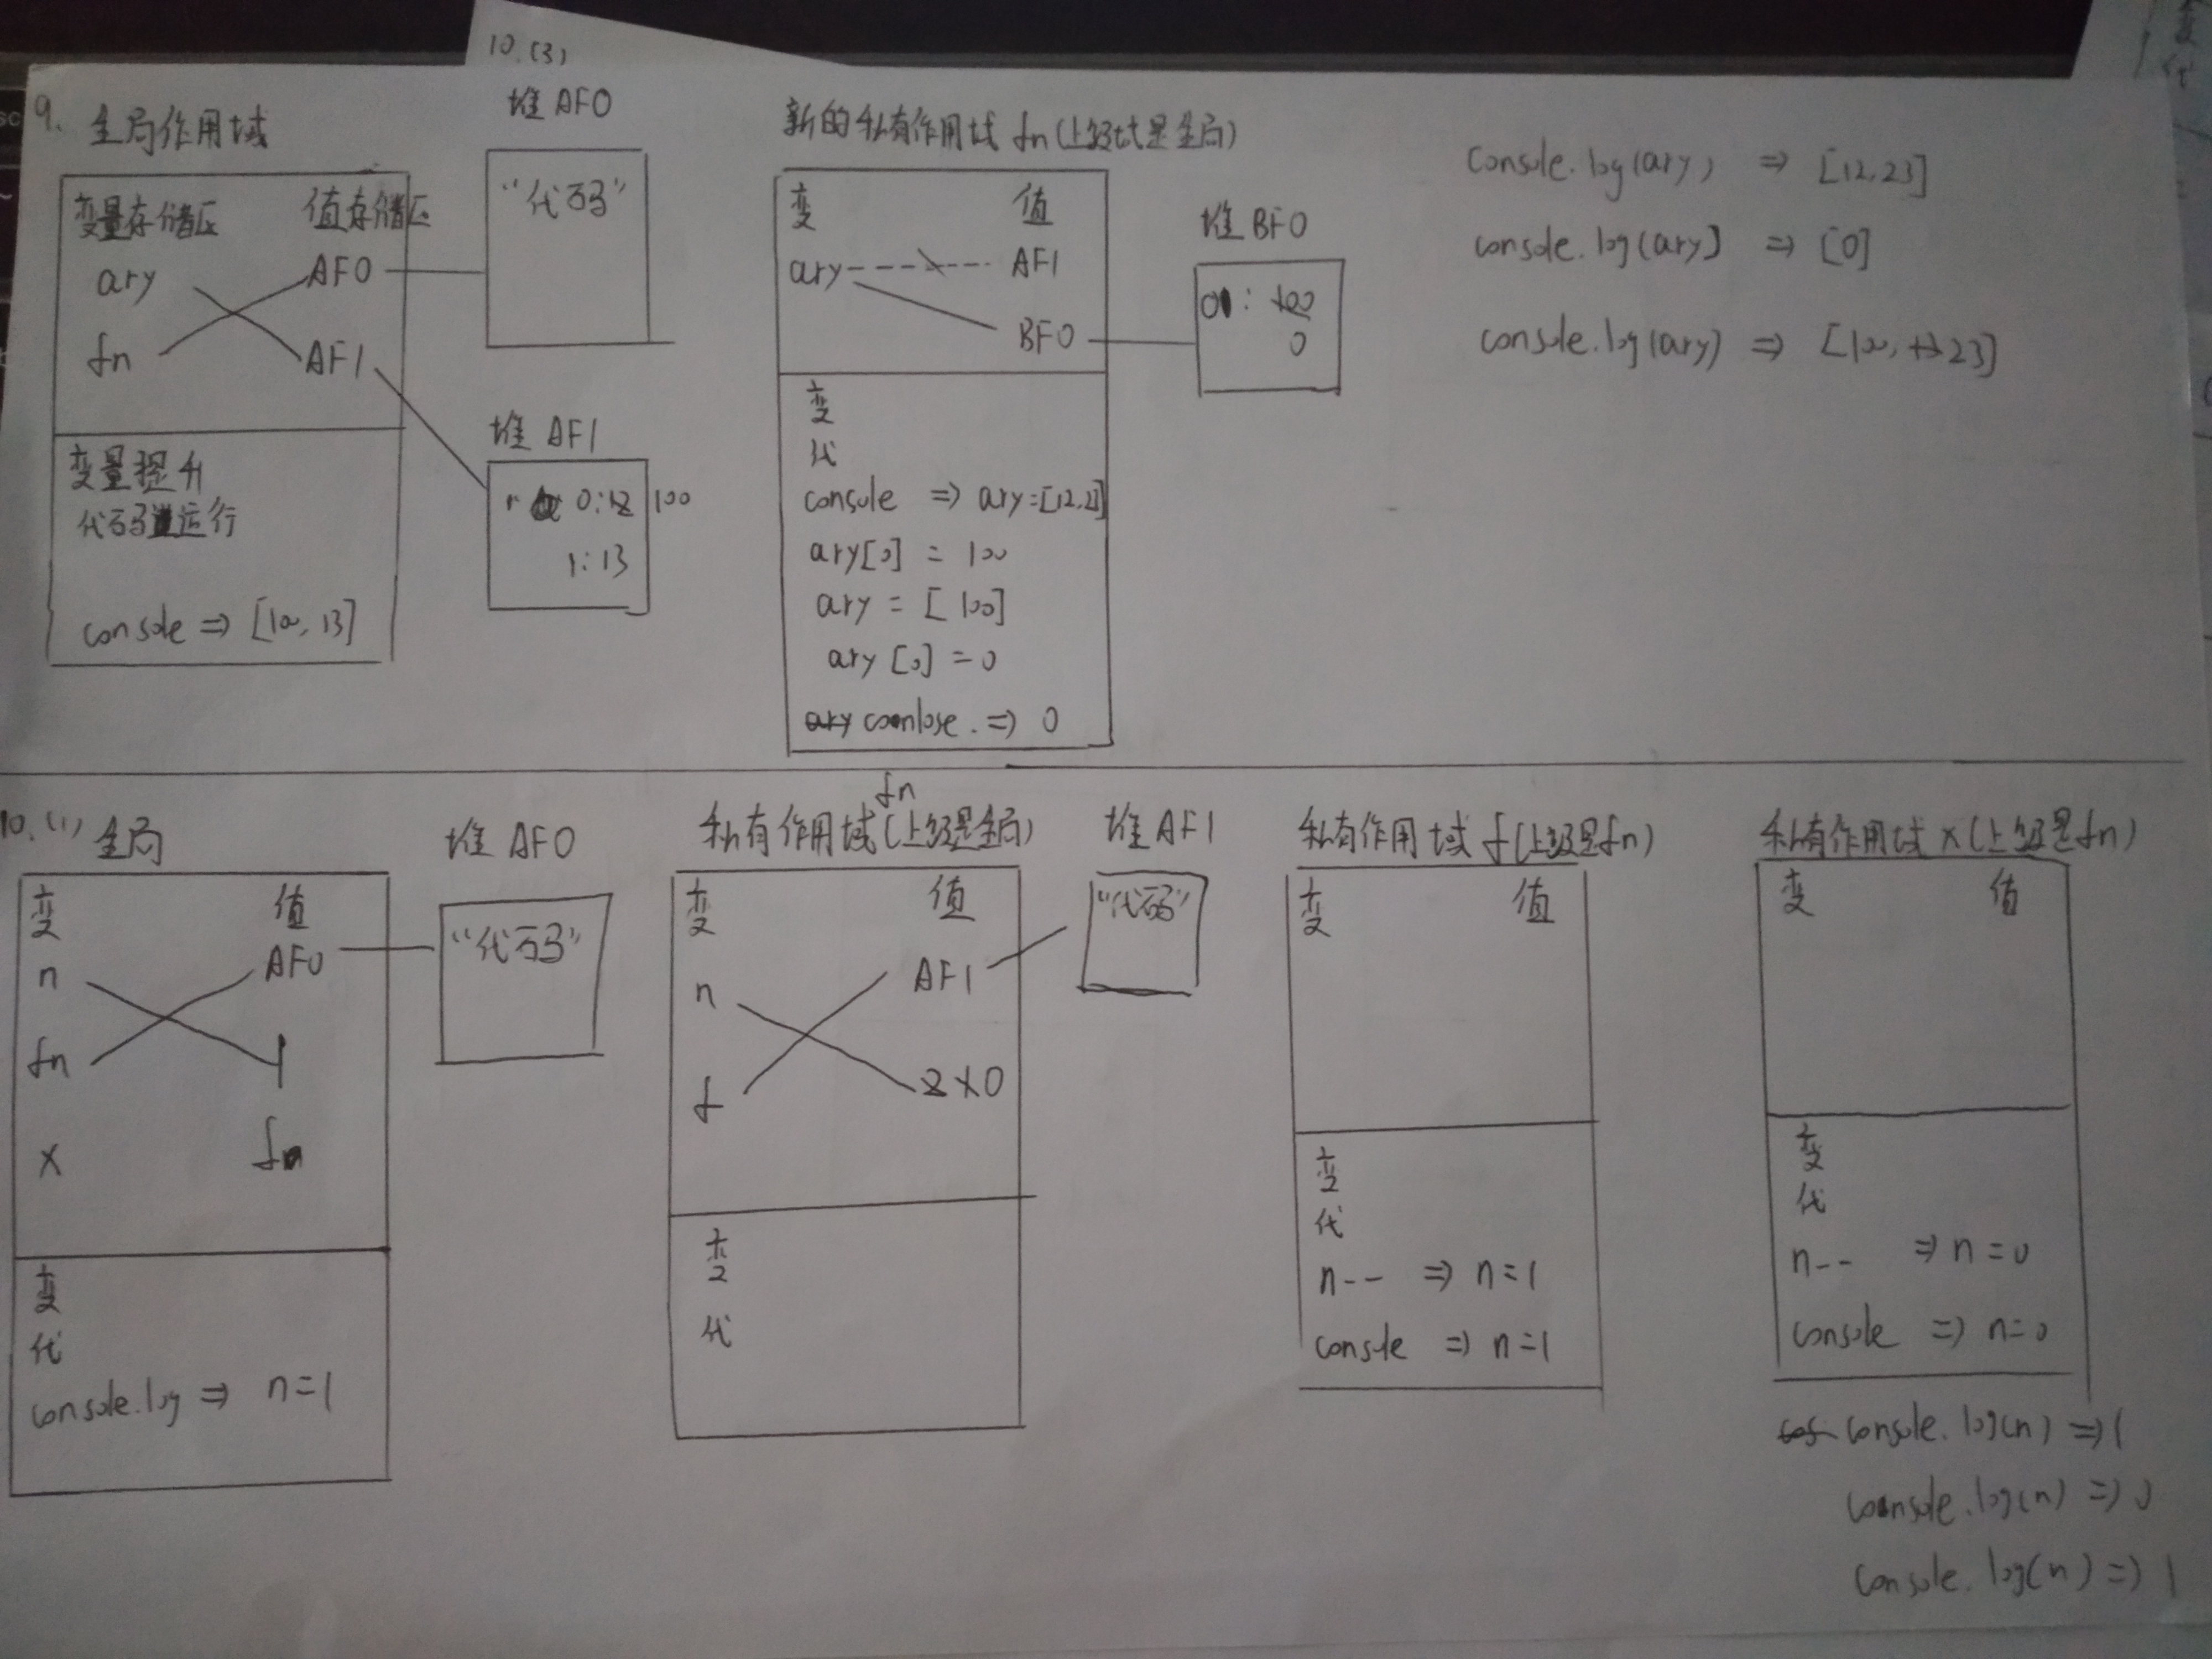 10.(3)
9. 全局作用域
变量存储区 值存储区
ary AF0
fn AF1
变量提升
代码运行
console => [100, 13]
堆 AF0
"代码"
堆 AF1
0:12 100
1:13
新的私有作用域 fn(上级域是全局)
变 值
ary AF1
BF0
变
代
console => ary=[12,23]
ary[0] = 100
ary = [100]
ary[0] = 0
ary coonlose. => 0
堆 BF0
0: 100
0
console.log(ary) => [12,23]
console.log(ary] => [0]
console.log(ary) => [100, 23]
10.(1) 全局
变 值
n AF0
fn 1
x fn
变
代
console.log => n=1
堆 AF0
"代码"
fn
私有作用域(上级是全局)
变 值
n AF1
f 2 1 0
变
代
堆 AF1
"代码"
私有作用域 f(上级是fn)
变 值
变
代
n-- => n=1
console => n=1
私有作用域 x(上级是fn)
变 值
变
代
n-- => n=0
console => n=0
console.log(n) => 1
console.log(n) => 0
console.log(n) => 1